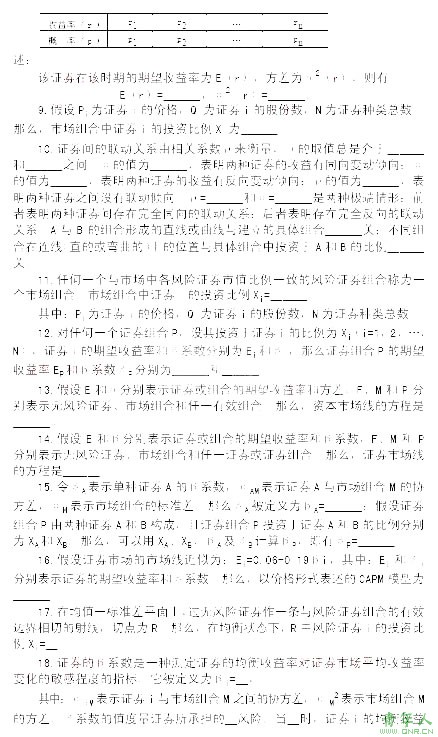 收益率(r) r1 r2 … rn
概 率(p) p1 p2 … pn
述:
该证券在该时期的期望收益率为E(r),方差为σ2(r),则有
E(r)=______,σ2(r)=______
9.假设Pi为证券i的价格,Qi为证券i的股份数,N为证券种类总数
那么,市场组合中证券i的投资比例Xi为_____
10.证券间的联动关系由相关系数ρ来衡量,ρ的取值总是介于______
和______之间 ρ的值为______,表明两种证券的收益有同向变动倾向;ρ
的值为______,表明两种证券的收益有反向变动倾向;ρ的值为______,表
明两种证券之间没有联动倾向 ρ=______和ρ=______是两种极端情形:前
者表明两种证券间存在完全同向的联动关系;后者表明存在完全反向的联动
关系 A与B的组合形成的直线或曲线与建立的具体组合______关;不同组
合在连线(直的或弯曲的)上的位置与具体组合中投资于A和B的比例______
关
11.任何一个与市场中各风险证券市值比例一致的风险证券组合称为一
个市场组合 市场组合中证券i的投资比例Xi=______
其中:Pi为证券i的价格,Qi为证券i的股份数,N为证券种类总数
12.对任何一个证券组合P,设其投资于证券i的比例为Xi(i=1,2,…,
N),证券i的期望收益率和β系数分别为Ei和βi,那么证券组合P的期望
收益率EP和β系数βP分别为______与______
13.假设E和σ分别表示证券或组合的期望收益率和方差 F、M和P分
别表示无风险证券、市场组合和任一有效组合 那么,资本市场线的方程是
______
14.假设E和β分别表示证券或组合的期望收益率和β系数,F、M和P
分别表示无风险证券、市场组合和任一证券或证券组合 那么,证券市场线
的方程是______
15.令βA表示单种证券A的β系数,σAM表示证券A与市场组合M的协
方差,σM表示市场组合的标准差 那么βA被定义为βA=______;假设证券
组合P由两种证券A和B构成,且证券组合P投资于证券A和B的比例分别
为XA和XB 那么,可以用XA、XB、βA及βB计算βP,即有βP=______
16.假设证券市场的市场线近似为:Ei=0.06+0.19βi,其中:Ei和βi
分别表示证券的期望收益率和β系数 那么,以价格形式表述的CAPM模型为
______
17.在均值—标准差平面上,过无风险证券作一条与风险证券组合的有效
边界相切的射线,切点为R 那么,在均衡状态下,R中风险证券i的投资比
例Xi=__
18.证券的β系数是一种测定证券的均衡收益率对证券市场平均收益率
变化的敏感程度的指标,它被定义为βi=__,
其中:σiM表示证券i与市场组合M之间的协方差,σM2表示市场组合M
的方差 β系数的值度量证券所承担的__风险 当__时,证券i的均衡收益
青年人
www.QNR.CN